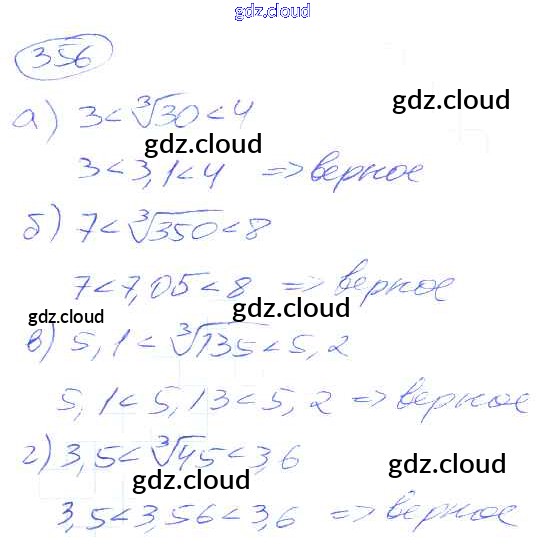 gdz.cloud
356
gdz.cloud
а) 3 < ∛30 < 4
gdz.cloud
3 < 3,1 < 4 => верное
б) 7 < ∛350 < 8
7 < 7,05 < 8 => верное
gdz.cloud
gdz.cloud
в) 5,1 < ∛135 < 5,2
5,1 < 5,13 < 5,2 => верное
г) 3,5 < ∛45 < 3,6
gdz.cloud
gdz.cloud
3,5 < 3,56 < 3,6 => верное